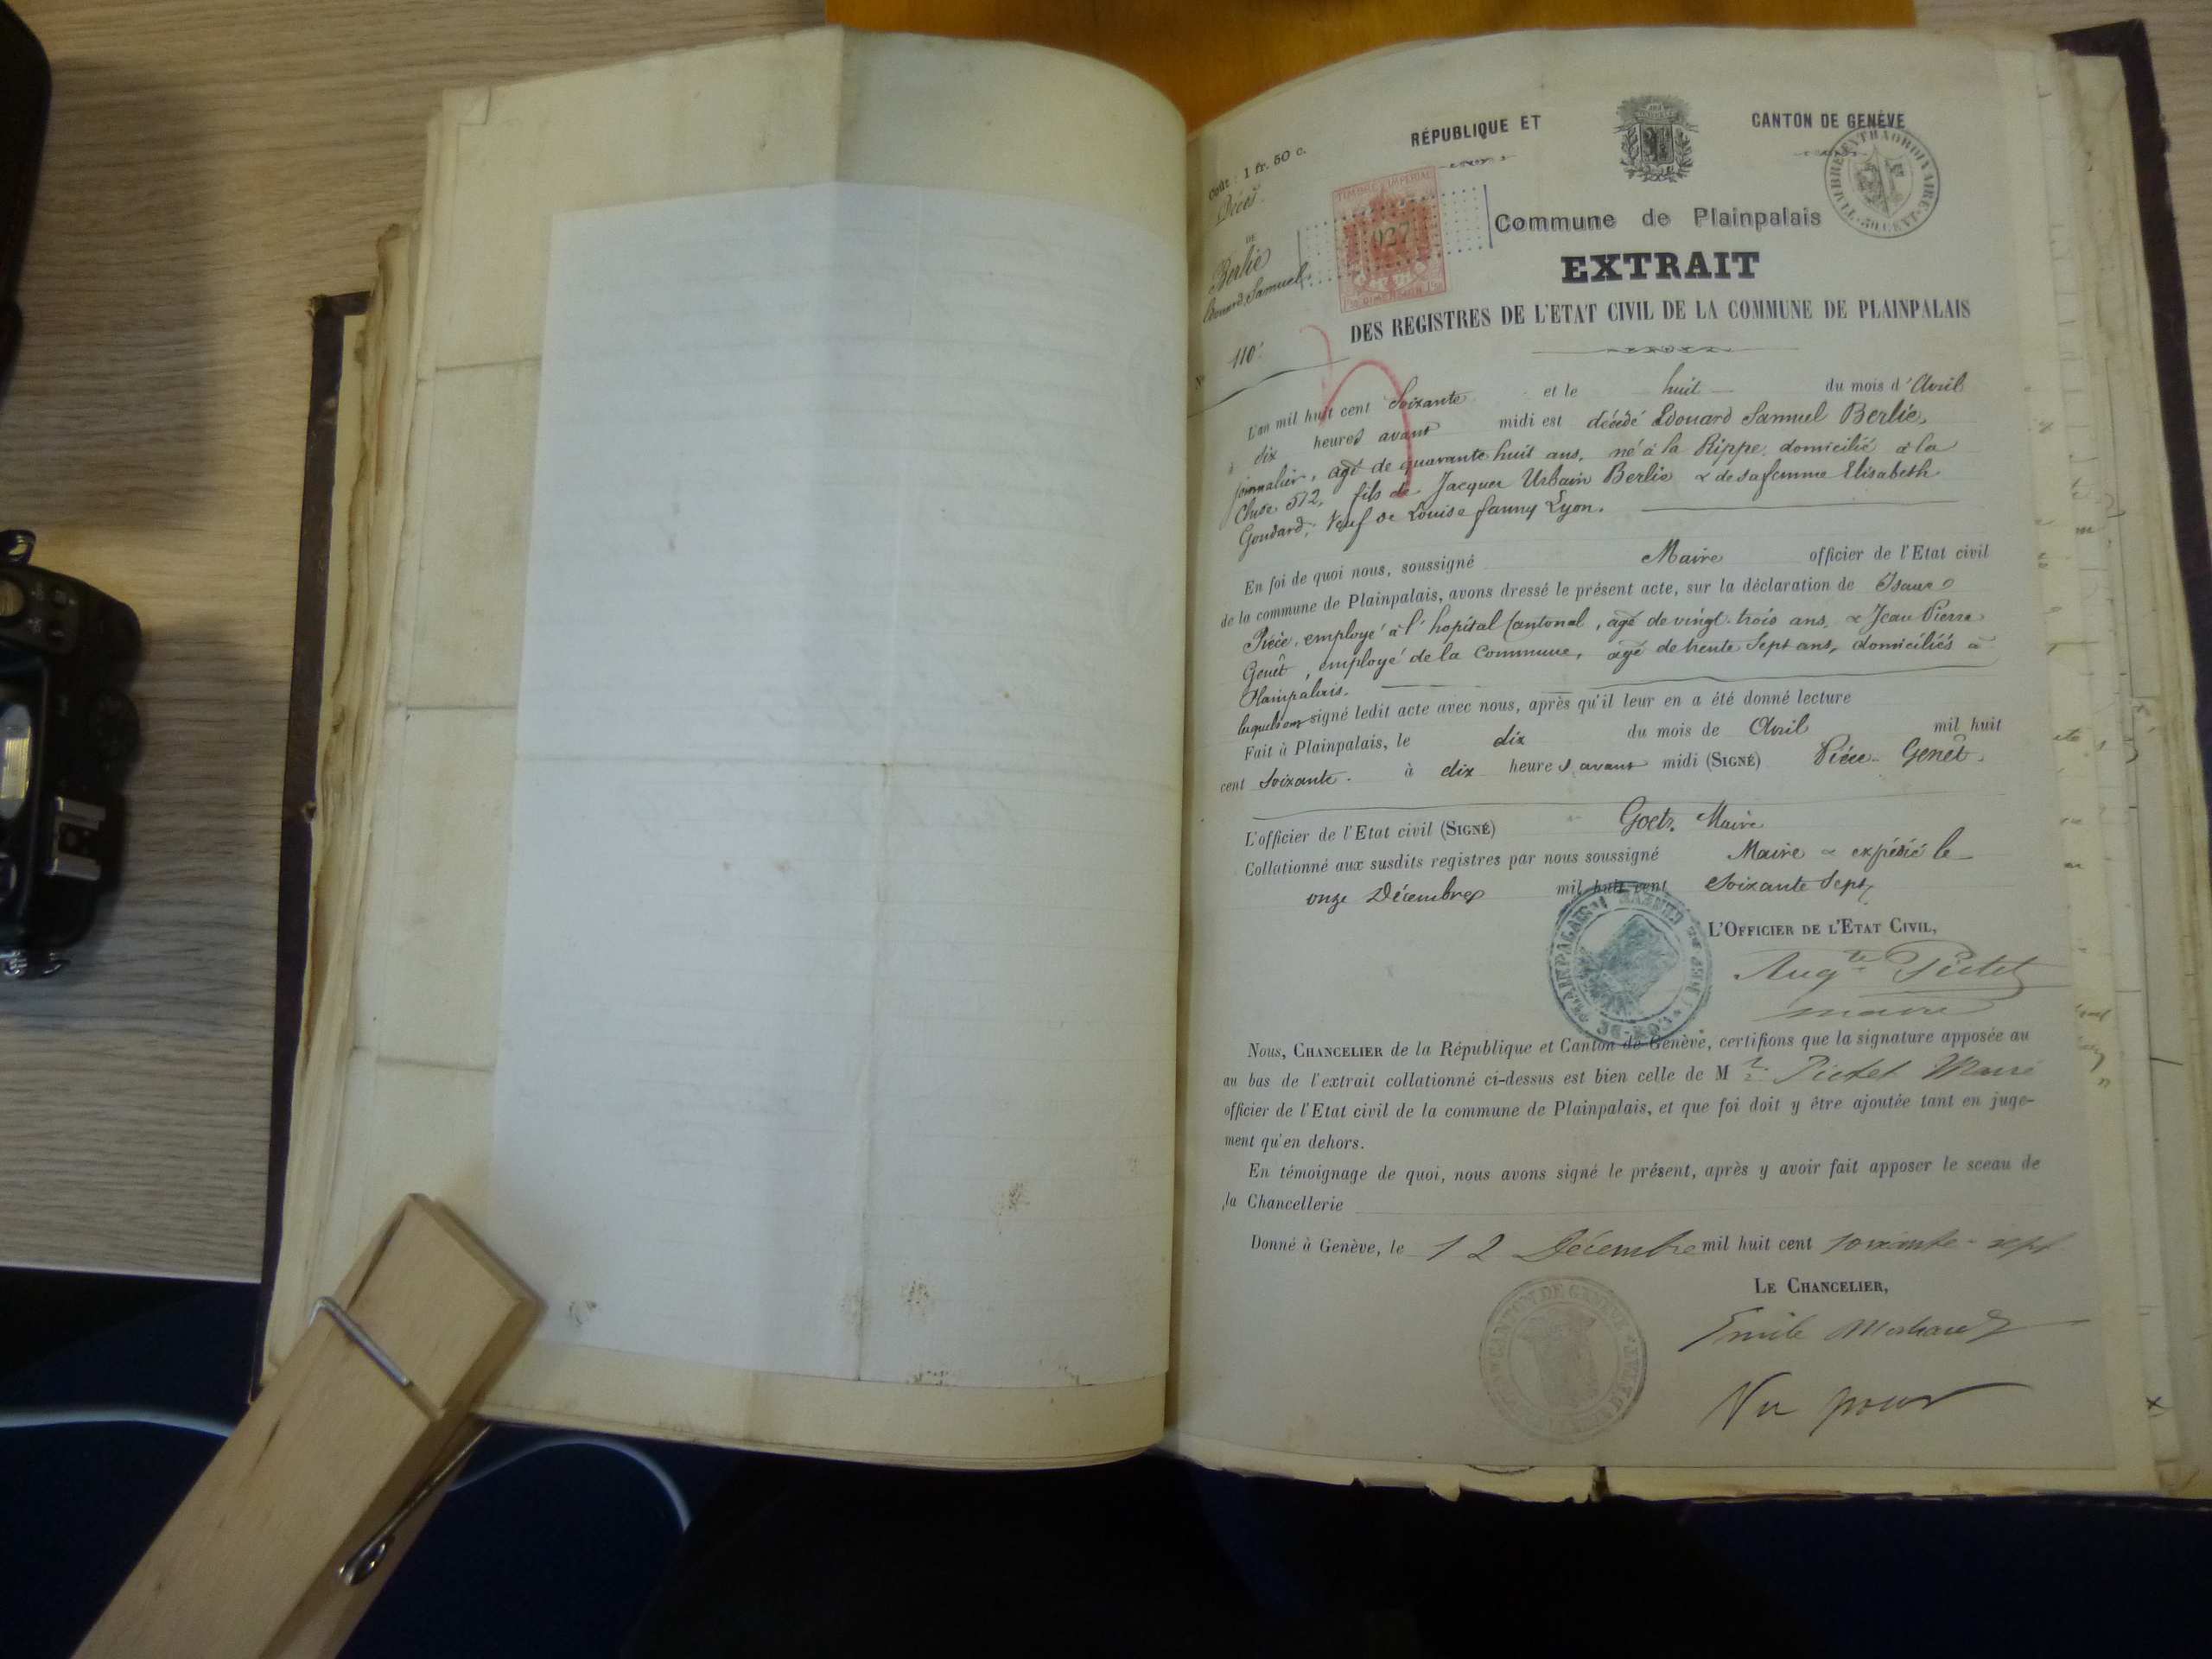 RÉPUBLIQUE ET CANTON DE GENÈVE
Coût : 1 fr. 50 c.
Décès
DE
Berlie
Edouard Samuel
TIMBRE IMPÉRIAL
TIMBRE EXTRAORDINAIRE
50 CENT.
Commune de Plainpalais
EXTRAIT
DES REGISTRES DE L'ETAT CIVIL DE LA COMMUNE DE PLAINPALAIS
No 110
L'an mil huit cent Soixante et le huit du mois d'Avril
à dix heures avant midi est décédé Edouard Samuel Berlie,
journalier, agé de quarante huit ans, né à la Rippe, domicilié à la
Cluse 572, fils de Jacques Urbain Berlie & de sa femme Elisabeth
Goudard; Veuf de Louise fanny Lyon.
En foi de quoi nous, soussigné Maire officier de l'Etat civil
de la commune de Plainpalais, avons dressé le présent acte, sur la déclaration de Isaac
Pièce, employé à l'hopital Cantonal, agé de vingt trois ans, & Jean Pierre
Genêt, employé de la Commune, agé de trente Sept ans, domiciliés à
Plainpalais.
lesquels ont signé ledit acte avec nous, après qu'il leur en a été donné lecture
Fait à Plainpalais, le dix du mois de Avril mil huit
cent Soixante. à dix heures avant midi (SIGNÉ) Pièce. Genêt.
L'officier de l'Etat civil (SIGNÉ) Goetz, Maire
Collationné aux susdits registres par nous soussigné Maire & expédié le
onze Décembre mil huit cent Soixante Sept
L'OFFICIER DE L'ETAT CIVIL,
Augte Pictet
maire
Nous, CHANCELIER de la République et Canton de Genève, certifions que la signature apposée au
au bas de l'extrait collationné ci-dessus est bien celle de Mr Pictet Maire
officier de l'Etat civil de la commune de Plainpalais, et que foi doit y être ajoutée tant en juge-
ment qu'en dehors.
En témoignage de quoi, nous avons signé le présent, après y avoir fait apposer le sceau de
la Chancellerie
Donné à Genève, le 12 Décembre mil huit cent soixante-sept
LE CHANCELIER,
Emile
Vu pour